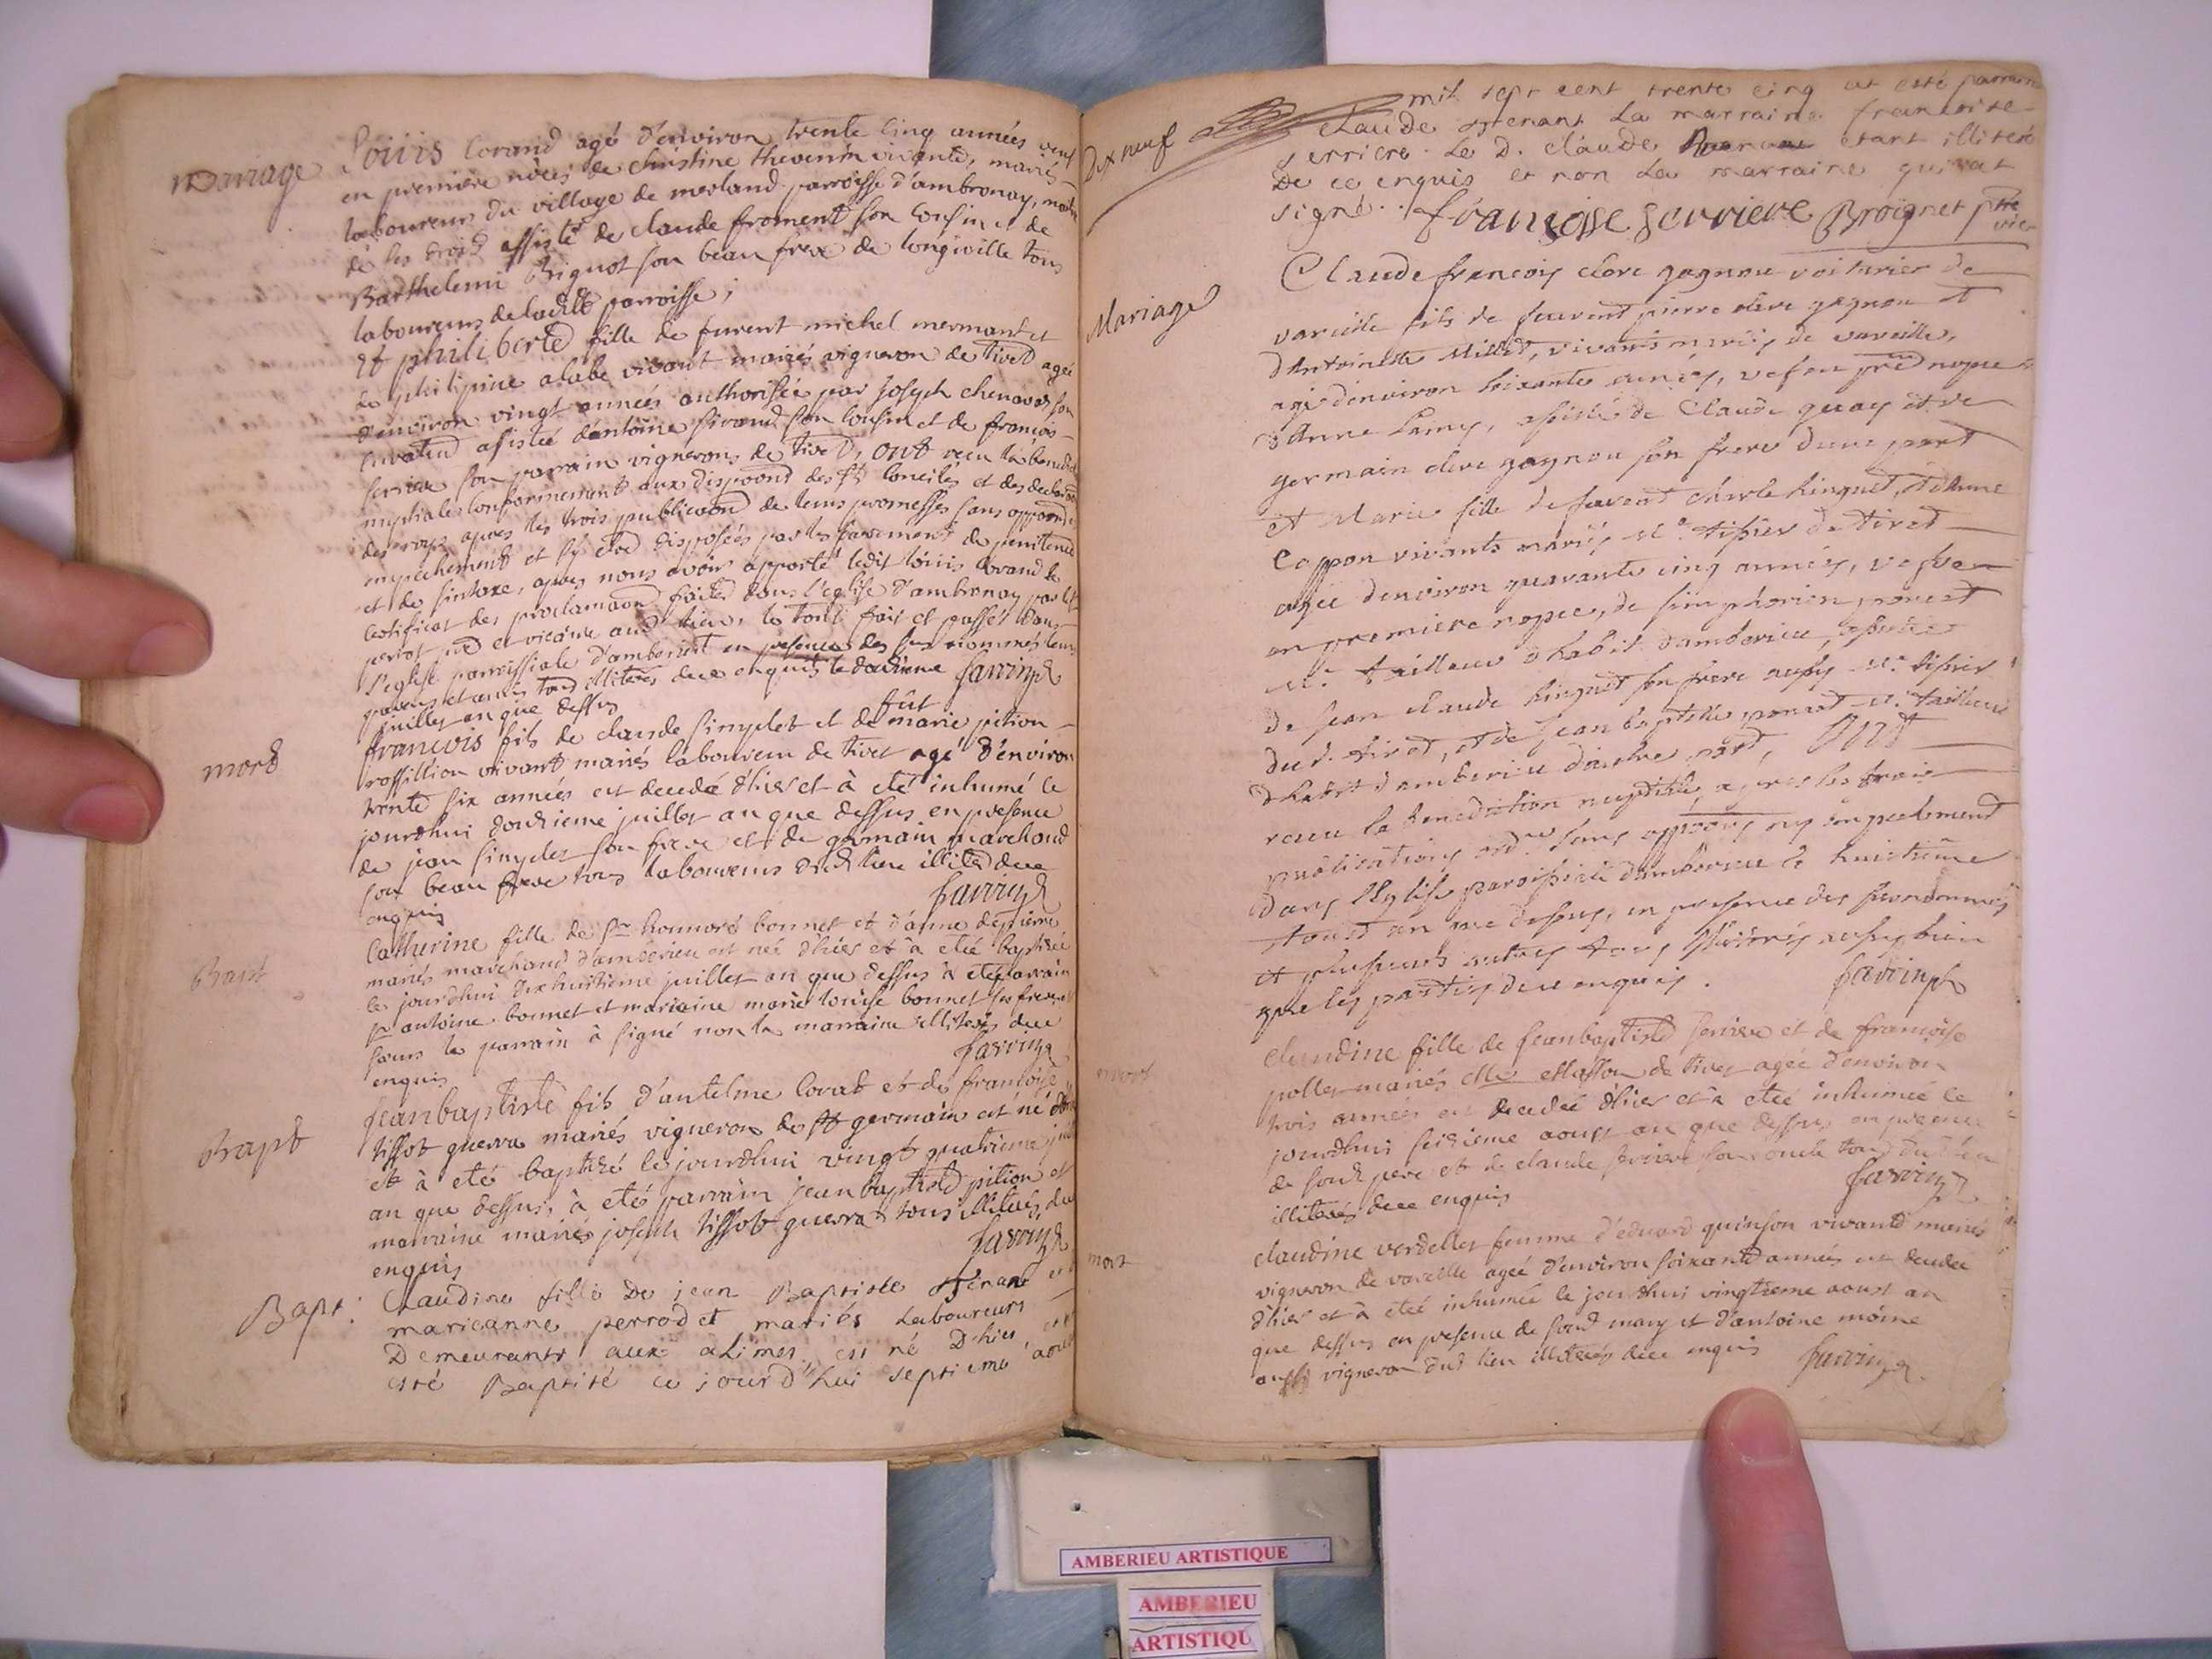 mariage
Loüis Corand agé d'environ trente cinq années veuf
en premiere nôces de christine thevenin vivants mariés
laboureurs du village de merland parroisse d'ambronay, maitre
de ses droits assisté de claude froment son cousin et de
Barthelemi Brignot son beau frere de longeville tous
laboureurs de ladite parroisse ;
Et philiberte fille de furent michel mermant et
de philipine alabe vivant mariés vigneron de tiret agée
d'environ vingt années authorisée par joseph chenavas son
curateur assistée d'antoine sirand son cousin et de françois
serriere son parrain vignerons de tiret, ont recu la benedict
nuptiale conformement aux disposons des sts conciles et des declaraons
des roys apres les trois publicaons de leurs promesses sans opposon
empechement et s'y etre disposées par les sacrement de penitence
et de sintaxe, apres nous avoir apporté ledit loüis Corand le
certificat des proclamaons faites dans l'eglise d'ambronay par
perrot pre et vicaire aud lieu, le tout fait et passés dans
l'eglise parroissiale d'amberieu en presence des sus nommés leurs
parens et amis tous illiterés dece enquis le douzieme
juillet an que dessus
mort
françois fils de claude simplet et de fût marie pition
rossillion vivant mariés laboureur de tiret agé d'environ
trente six années est decedé d'hier et à eté inhumé le
jourdhui douzieme juillet an que dessus en presence
de jean simplet son frere et de germain marchand
son beau frere tous laboureurs dud lieu illiterés dece
enquis
Bapt
Catherine fille de sr honnoré bonnet et d'anne depierre
mariés marchand d'amberieu est née d'hier et à eteé baptisée
le jourdhui dixhuitieme juillet an que dessus à eté parrain
sr antoine bonnet et marraine marie loüise bonnet ses frere et
sœurs le parrain à signé non la marraine illiterés dece
enquis
Bapt
jeanbaptiste fils d'antelme Corat et de françoise
tissot guerra mariés vigneron de st germain est né d'hier
et à eté baptisé le jourdhui vingt quatrieme
an que dessus, à eté parrain jean baptiste pition et
marraine mariés joseph tissot guerra tous illiterés de
enquis
Bapt :
Claudine fille De jean Baptiste et
marieanne perrodet mariés Laboureurs
Demeurants aux alimes, est né D'hier, et
esté Baptisé ce jour d'hui septieme aout
Dix neuf
mil sept cent trente cinq at esté parrain
Claude La marraine francoise
serriere. Le D. Claude etant illiteré
De ce enquis et non La marraine qui at
signé. francoise serriere Broignet ptre
vic
Mariage
Claude françois clerc gagnou voiturier de
vareille fils de feurent pierre clerc gagnou et
d'Antoinette Millet, vivants mariés de vareille,
agé d'environ soixante années, vefe en pre nopce
d'Anne Lamy, assisté de Claude quay et de
germain clerc gagnou son frere d'une part
et Marie fille de feurent charle hinquet, et d'Anne
Coppon vivants mariés Me. tissier de tiret
agée d'environ quarante cinq années, vefve
en premiere nopce, de simphorien
Me. tailleur d'habit d'amberieu, assistée
de jean claude hinquet son frere aussy Me. tissier
du d. tiret, et de jean baptiste Me. tailleur
d'habit d'amberieu d'autre part, Ont
receu la benediction nuptiale, apres les trois
publications ordres. sans oppoons ny empechement
dans l'Eglise paroissiale d'amberieu le huictieme
aoust an que dessus, en presence des surnommés
et plusieurs autres tous illiterés aussy bien
que les parties dece enquis.
mort
claudine fille de jeanbaptiste serriere et de françoise
pollet mariés Me. Masson de tiret agée d'environ
trois années est decedée d'hier et à eteé inhumée le
jourdhui seizieme aoust an que dessus en presence
de sond pere et de claude serriere son oncle tous dud lieu
illiterés dece enquis
mort
claudine verdellet femme d'eduard quinson vivants mariés
vigneron de vareille agée d'environ soixante années est decedée
d'hier et à eteé inhumée le jourdhui vingtieme aoust an
que dessus en presence de sond mary et d'antoine moine
aussi vigneron dud lieu illiterés dece enquis
AMBERIEU ARTISTIQUE
AMBERIEU
ARTISTIQU